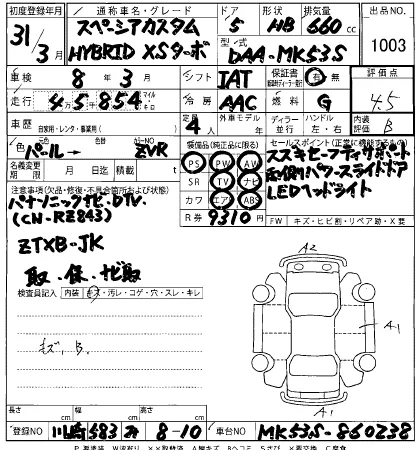 初度登録年月 通称車名・グレード ドア 形状 排気量 出品NO.
31年3月 スペーシアカスタム HYBRID XSターボ 5 HB 660cc 1003
型式 DAA-MK53S
車検 8年3月 シフト IAT 保証書 有 無 評価点
走行 4万5千854 マイル キロ 冷房 AAC 燃料 G 4.5
車歴 自家用・レンタ・事業用( ) 定員 4人 外車モデル 年 ディーラー 並行 ハンドル 左・右 内装評価 B
色 パール→ 色替 カラーNO ZVR 装備品(純正品に限る) セールスポイント(正常に機能するもの)
名義変更期限 月 日迄 積載 t PS PW AW スズキセーフティサポート
注意事項(欠品・修復・不具合箇所および状態) SR TV ナビ 両側パワースライドドア
パナソニックナビ・DTV. カワ エア ABS LEDヘッドライト
(CN-RZ843) R券 9310円
FW キズ・ヒビ割・リペア跡・X要
ZTXB-JK
取・保・ナビ取
検査員記入 内装 キズ・汚レ・コゲ・穴・スレ・キレ
キズ、B.
A2
A1
A1
長さ cm 幅 cm 高さ cm
登録NO 川崎583 8-10 車台NO MK53S-860238